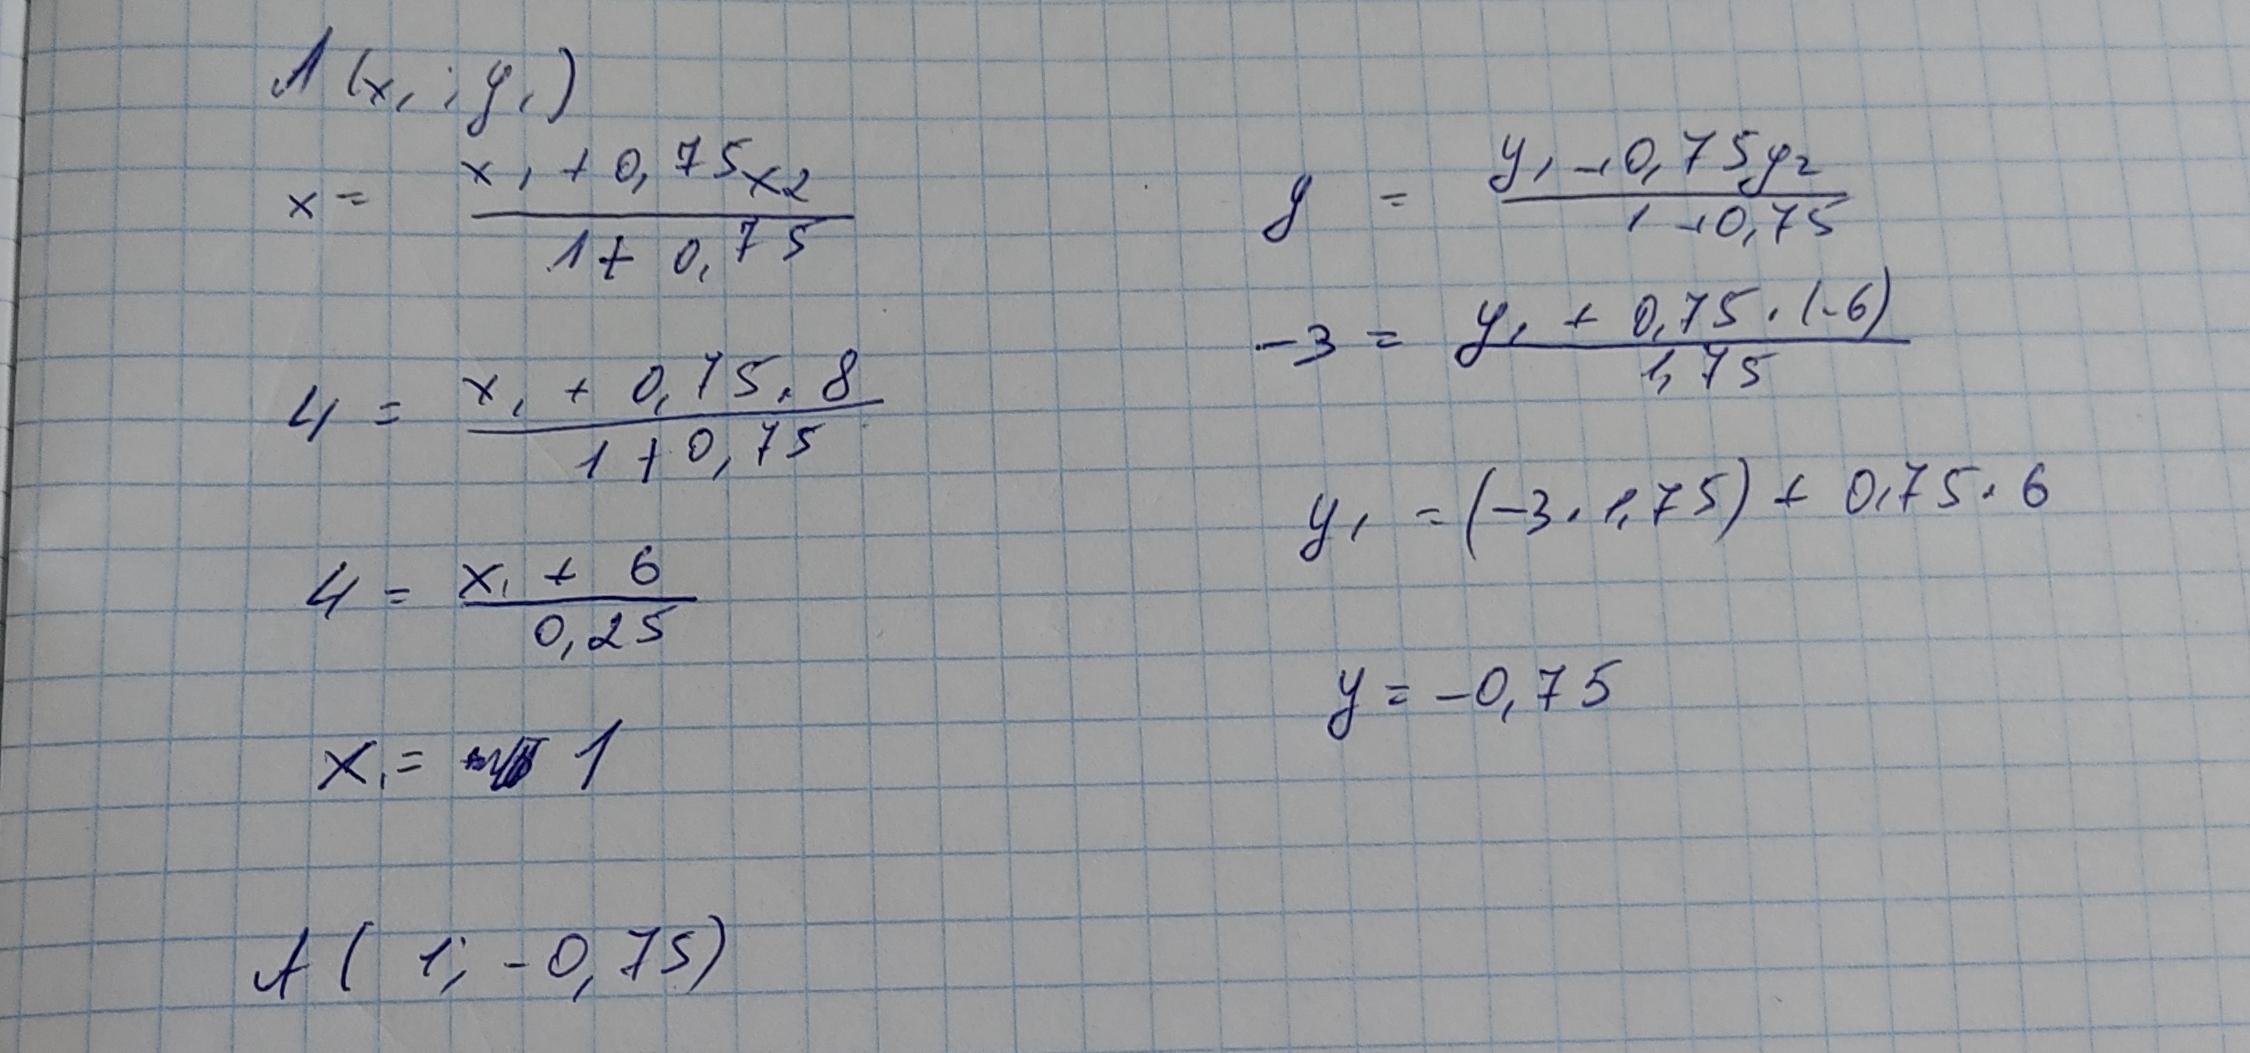 A(x₁; y₁)
x = (x₁ + 0,75x₂)/(1 + 0,75)
4 = (x₁ + 0,75 · 8)/(1 + 0,75)
4 = (x₁ + 6)/(0,25)
x₁ = 1
A( 1; -0,75)
y = (y₁ + 0,75y₂)/(1 + 0,75)
-3 = (y₁ + 0,75 · (-6))/(1,75)
y₁ = (-3 · 1,75) + 0,75 · 6
y = -0,75